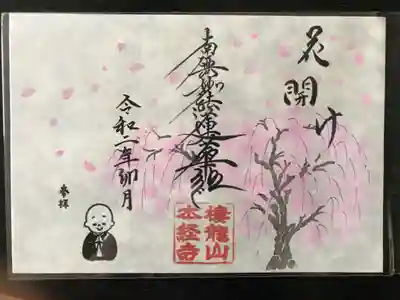 花開け
南無妙法蓮華経
令和二年卯月
参拝
棲龍山
本経寺